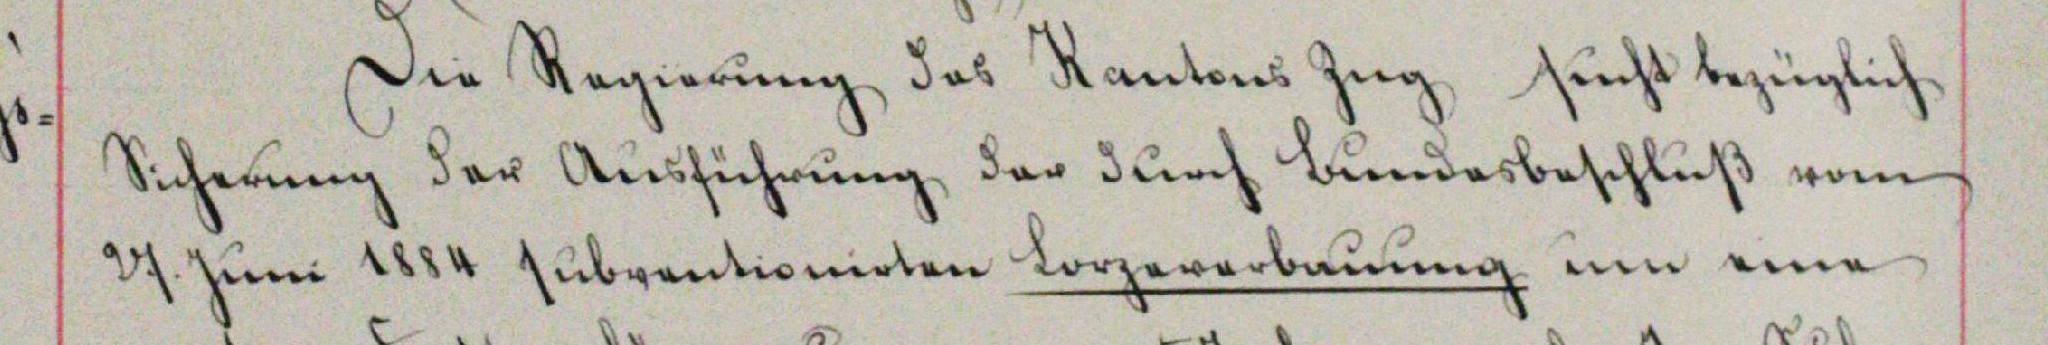 Die Regierung des Kantons Zug sucht bezüglich
Sicherung der Ausführung der durch Bundesbeschluß vom
27. Juni 1884 subventionirten Lorzeverbauung um eine